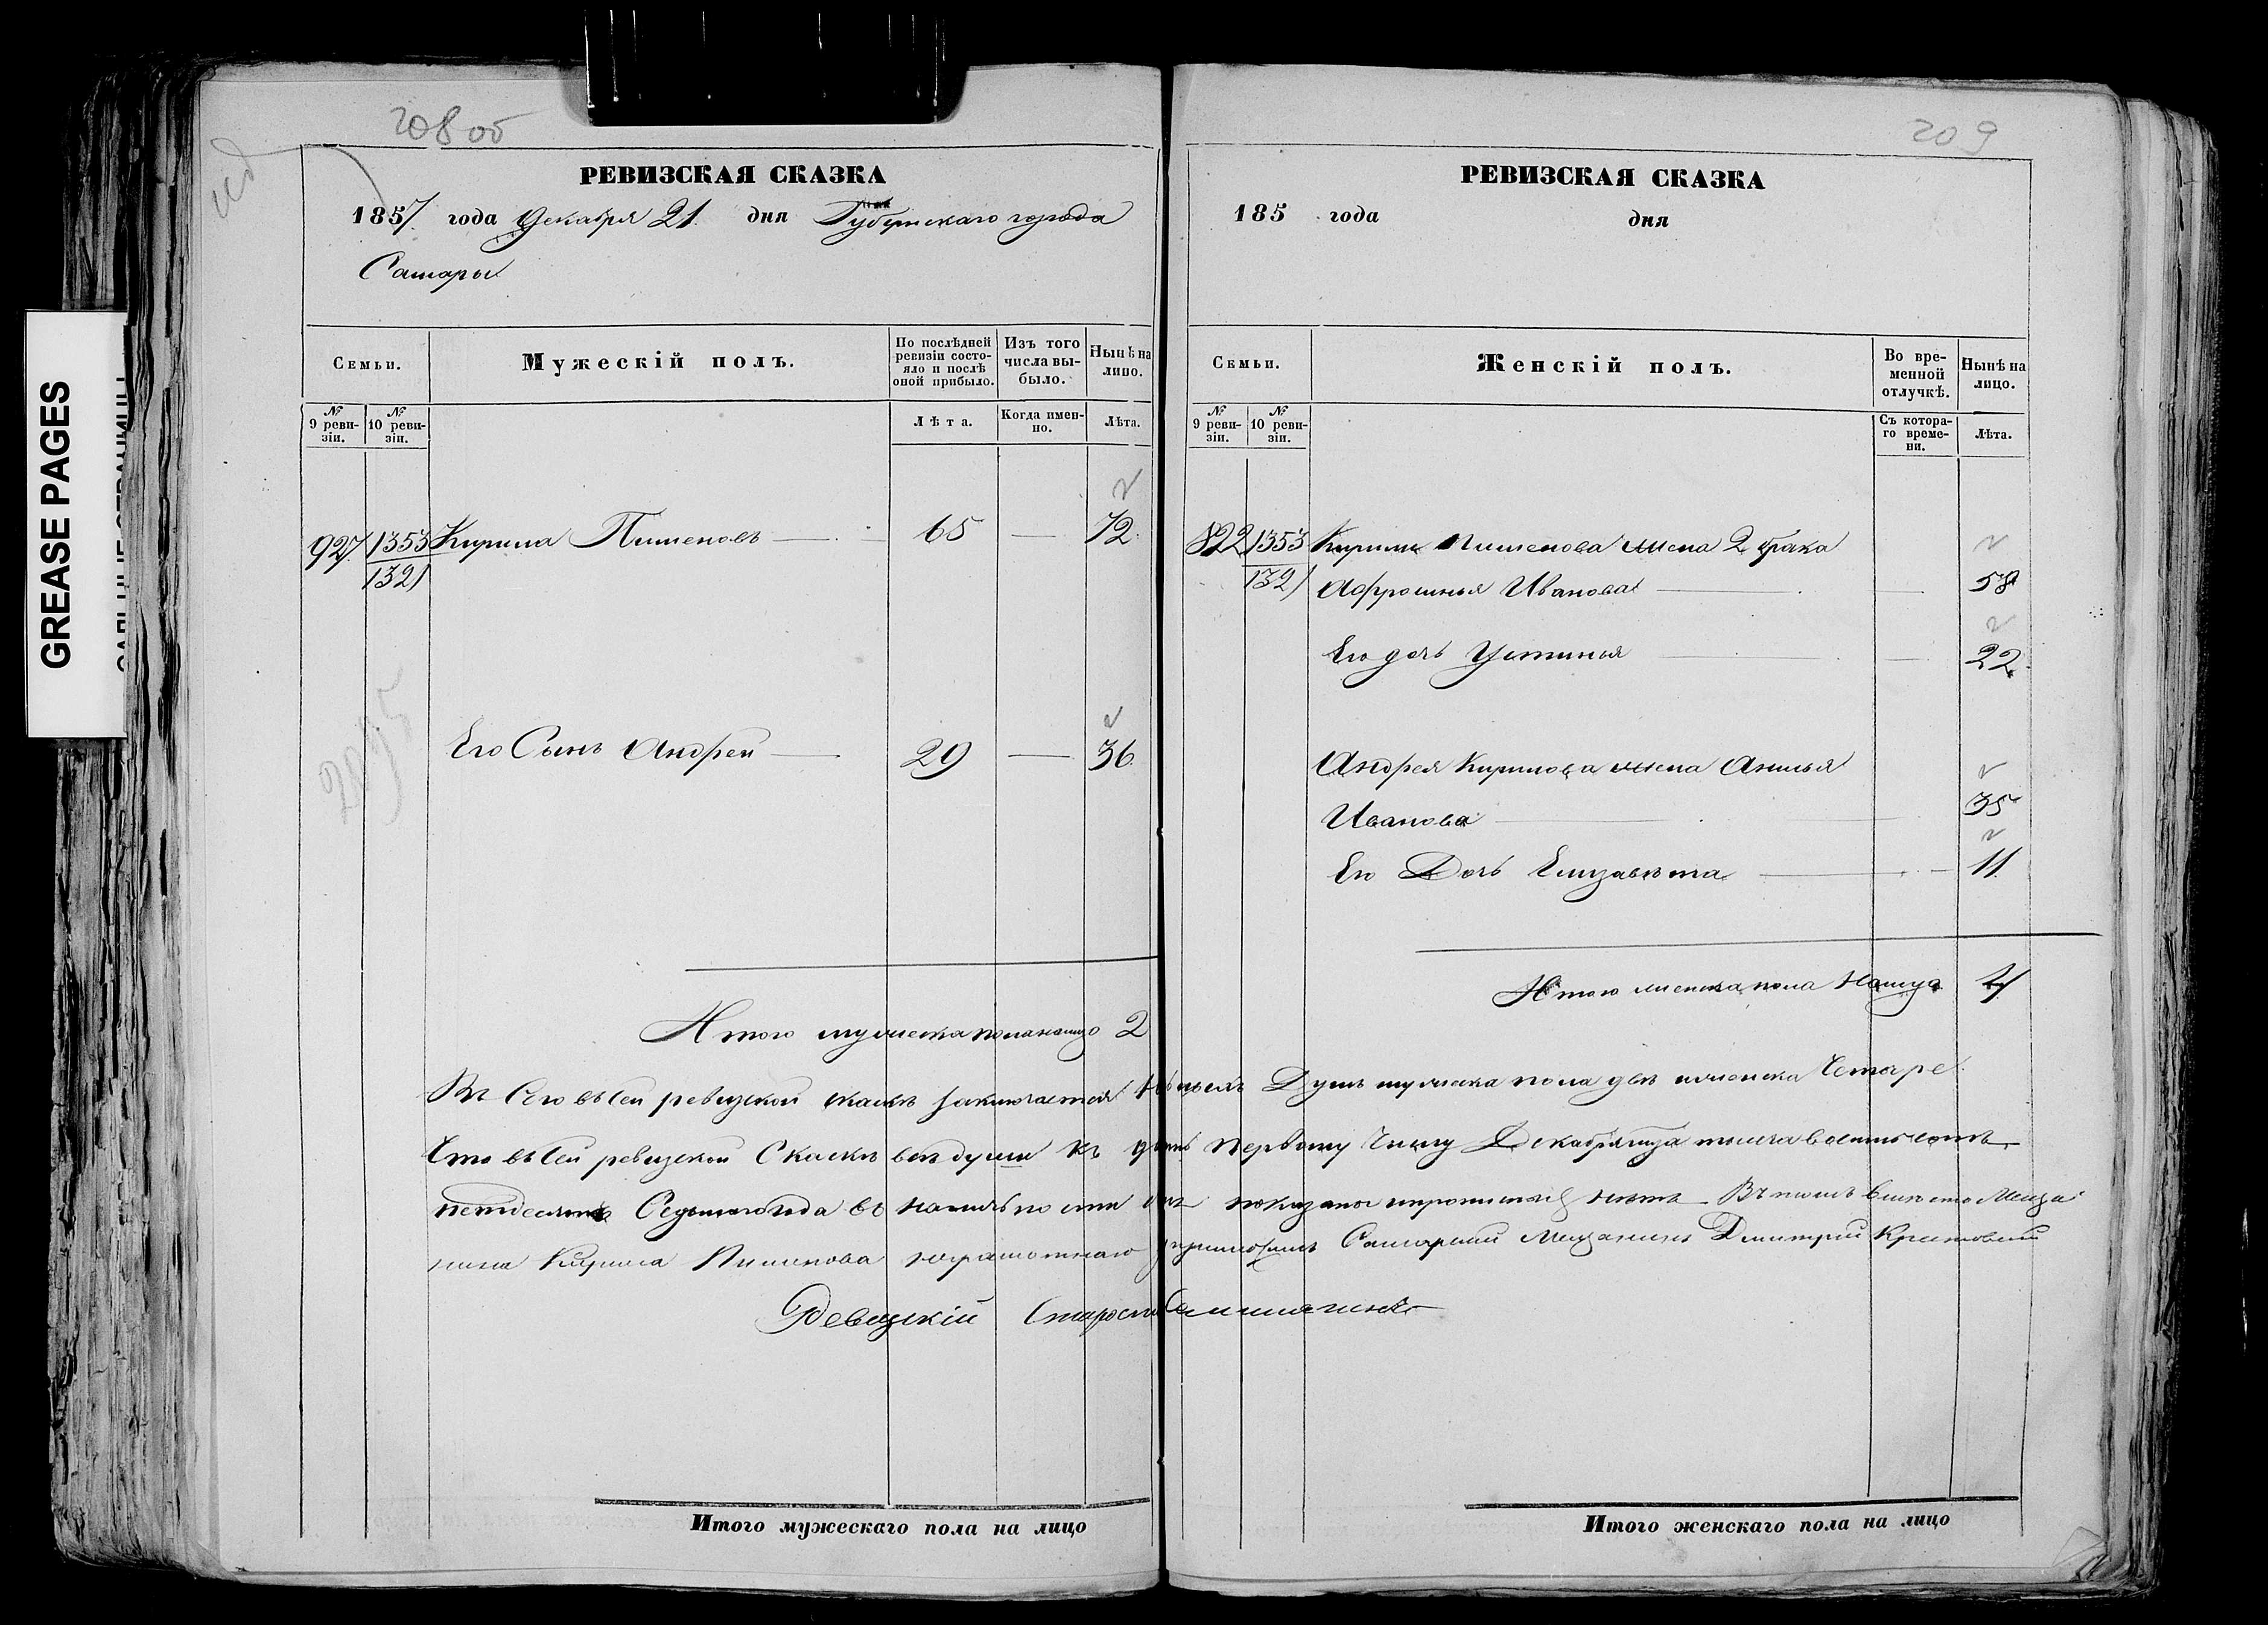 208 об
РЕВИЗСКАЯ СКАЗКА
1857. года Декабря 21. дня Губернскаго города
Самары
Семьи.
Мужескій полъ.
По послѣдней ревизіи состояло и послѣ оной прибыло.
Изъ того числа выбыло.
Нынѣ на лицо.
№ 9 ревизіи.
№ 10 ревизіи.
Лѣта.
Когда именно.
Лѣта.
927 1353 Кирила Пименовъ — 65 — 72.
1321
Его Сынъ Андрей — 29 — 36.
Итого мужеска пола налицо 2
209
РЕВИЗСКАЯ СКАЗКА
185 года дня
Семьи.
Женскій полъ.
Во временной отлучкѣ.
Нынѣ на лицо.
№ 9 ревизіи.
№ 10 ревизіи.
Съ котораго времени.
Лѣта.
822 1353 Кирилы Пименова жена 2 брака
1321 Афросинья Иванова — 58
Его дочь Устинья — 22.
Андрея Кирилова жена Анисья
Иванова — 35
Его Дочь Елизавета — 11.
Итого женска пола налицо 4
въ сей ревизской скаскѣ заключается Душъ мужеска пола двѣ и женска Четыре
Что въ сей ревизской Скаскѣ всѣ души къ первому числу Декабря
Седьмаго года въ показаны и прописныхъ нѣтъ. Въ томъ вместо Меща
нина Кирила Пименова неграмотнаго Самарскій Мещанинъ Дмитрий
Ревизскій Староста
GREASE PAGES
Итого мужескаго пола на лицо
Итого женскаго пола на лицо